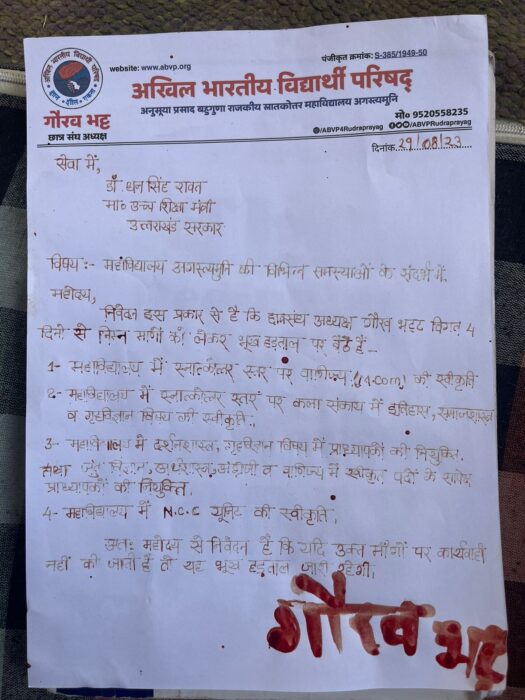 website: www.abvp.org
पंजीकृत क्रमांक: S-385/1949-50
अखिल भारतीय विद्यार्थी परिषद्
अनुसूया प्रसाद बहुगुणा राजकीय स्नातकोत्तर महाविद्यालय अगस्त्यमुनि
गौरव भट्ट
छात्र संघ अध्यक्ष
मो० 9520558235
@/ABVP4Rudraprayag @/ABVPRudraprayag
दिनांक 29/08/23
सेवा में,
डॉ धन सिंह रावत
मा० उच्च शिक्षा मंत्री
उत्तराखंड सरकार
विषय :- महाविद्यालय अगस्त्यमुनि की विभिन्न समस्याओं के संदर्भ में
महोदय,
निवेदन इस प्रकार से है कि छात्रसंघ अध्यक्ष गौरव भट्ट विगत 4
दिनों से निम्न मांगों को लेकर भूख हड़ताल पर बैठे हैं -
1- महाविद्यालय में स्नातकोत्तर स्तर पर वाणिज्य (M.com) की स्वीकृति
2- महाविद्यालय में स्नातकोत्तर स्तर पर कला संकाय में इतिहास, समाजशास्त्र
व गृहविज्ञान विषय की स्वीकृति।
3- महाविद्यालय में दर्शनशास्त्र, गृहविज्ञान विषय में प्राध्यापकों की नियुक्ति
तथा जंतु विज्ञान, अर्थशास्त्र, अंग्रेजी व वाणिज्य में स्वीकृत पदों के सापेक्ष
प्राध्यापकों की नियुक्ति
4- महाविद्यालय में N.C.C यूनिट की स्वीकृति।
अतः महोदय से निवेदन है कि यदि उक्त माँगों पर कार्यवाही
नहीं की जाती है तो यह भूख हड़ताल जारी रहेगी।
गौरव भट्ट